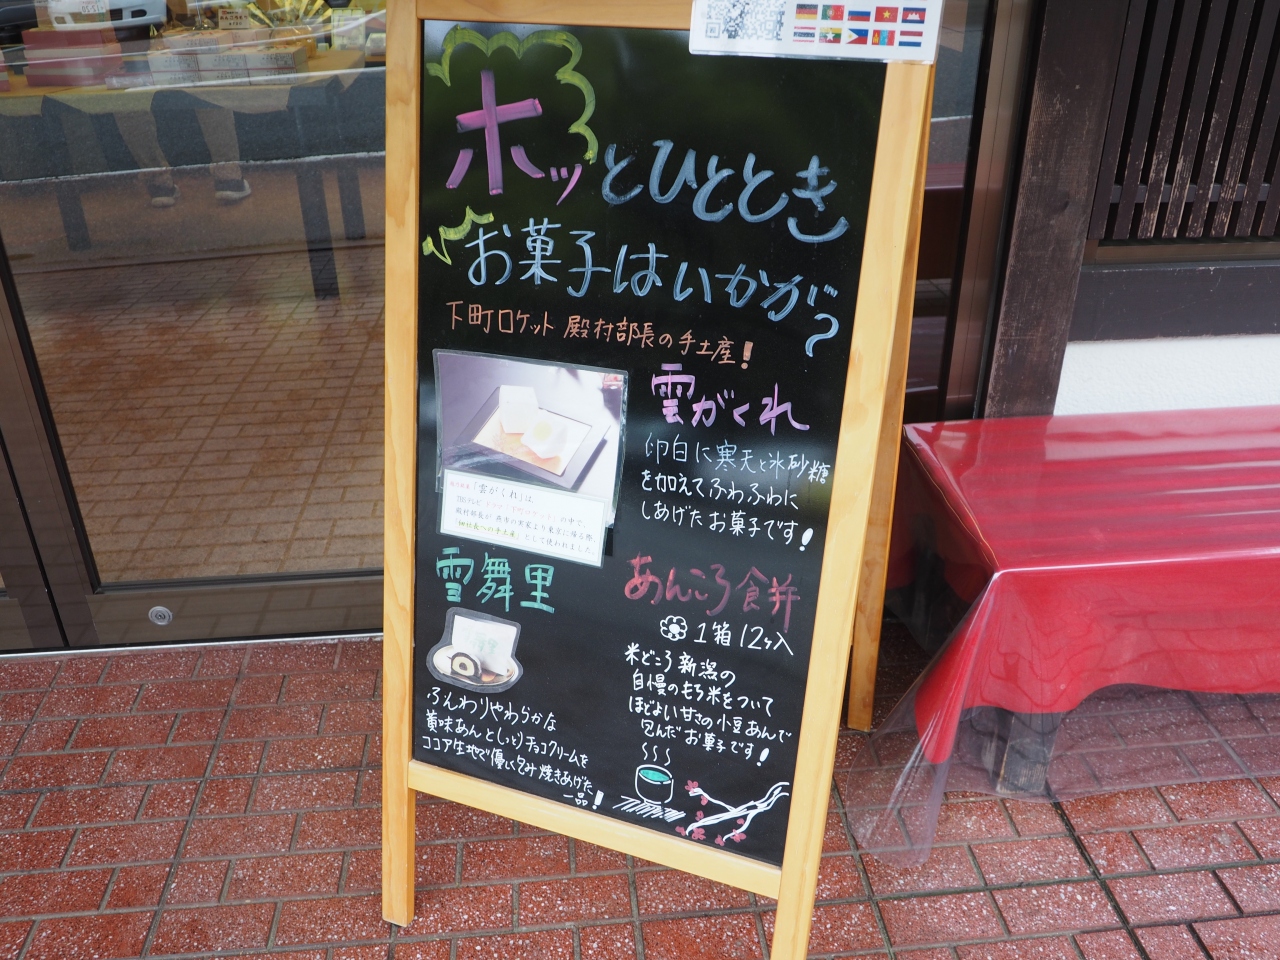 ホッとひととき
お菓子はいかが?
下町ロケット 殿村部長の手土産!
雲がくれ
卵白に寒天と氷砂糖
を加えてふわふわに
しあげたお菓子です!
「雲がくれ」は、
TBSテレビ
の中で、
殿村部長が 燕市の実家より東京に帰る際、
「神社長への手土産」として使われました。
雪舞里
ふんわりやわらかな
黄味あんとしっとりチョコクリームを
ココア生地で優しく包み焼きあげた
一品!
あんころ餅
1箱12ヶ入
米どころ新潟の
自慢のもち米をついて
ほどよい甘さの小豆あんで
包んだお菓子です!